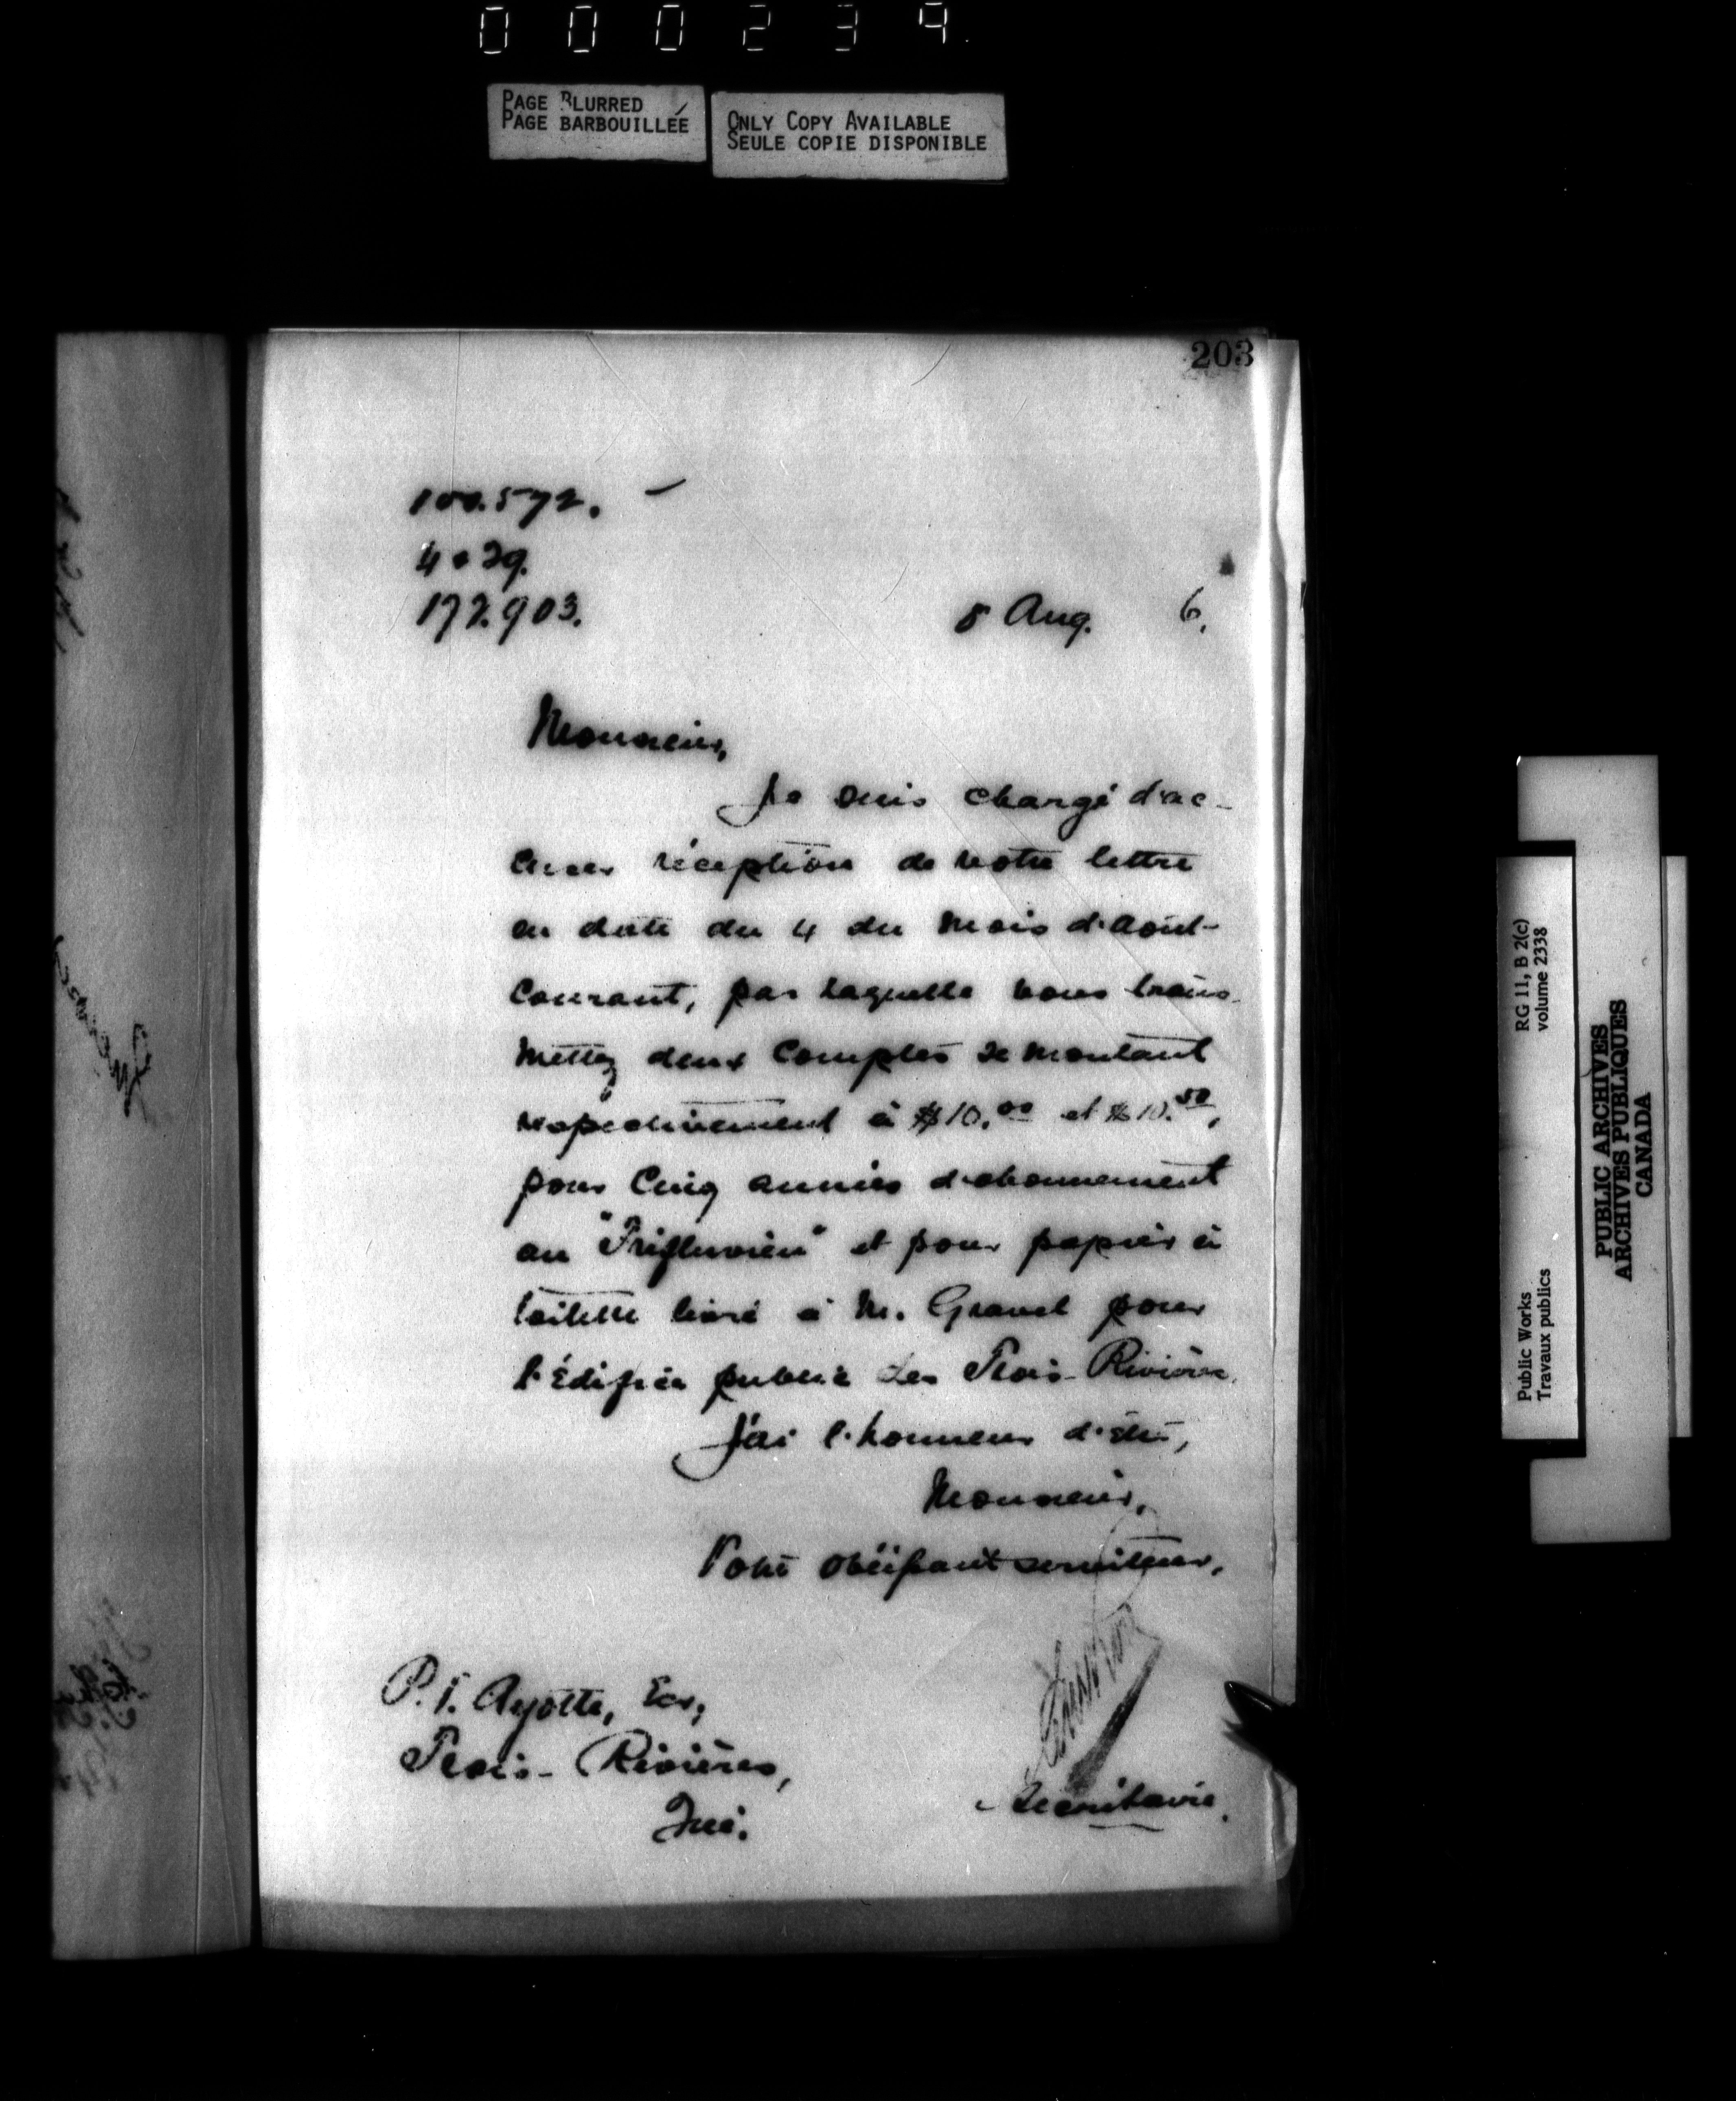 000234
PAGE BLURRED
PAGE BARBOUILLÉE
ONLY COPY AVAILABLE
SEULE COPIE DISPONIBLE
203
100.572.
4029.
172.903.
8 Aug. 6.
Monsieur,
Je suis chargé d'ac-
cuser réception de votre lettre
en date du 4 du mois d'août
courant, par laquelle vous trans-
mettez deux comptes se montant
respectivement à $10.00 et $10.50,
pour cinq années d'abonnement
au "Trifluvien" et pour papier à
toilette livré à M. Gravel pour
l'Édifice public des Trois-Rivières.
J'ai l'honneur d'être,
Monsieur,
Votre obéissant serviteur,
Secrétaire.
P. V. Ayotte, Ecr,
Trois-Rivières,
Qué.
Public Works
Travaux publics
RG 11, B 2(c)
volume 2338
PUBLIC ARCHIVES
ARCHIVES PUBLIQUES
CANADA